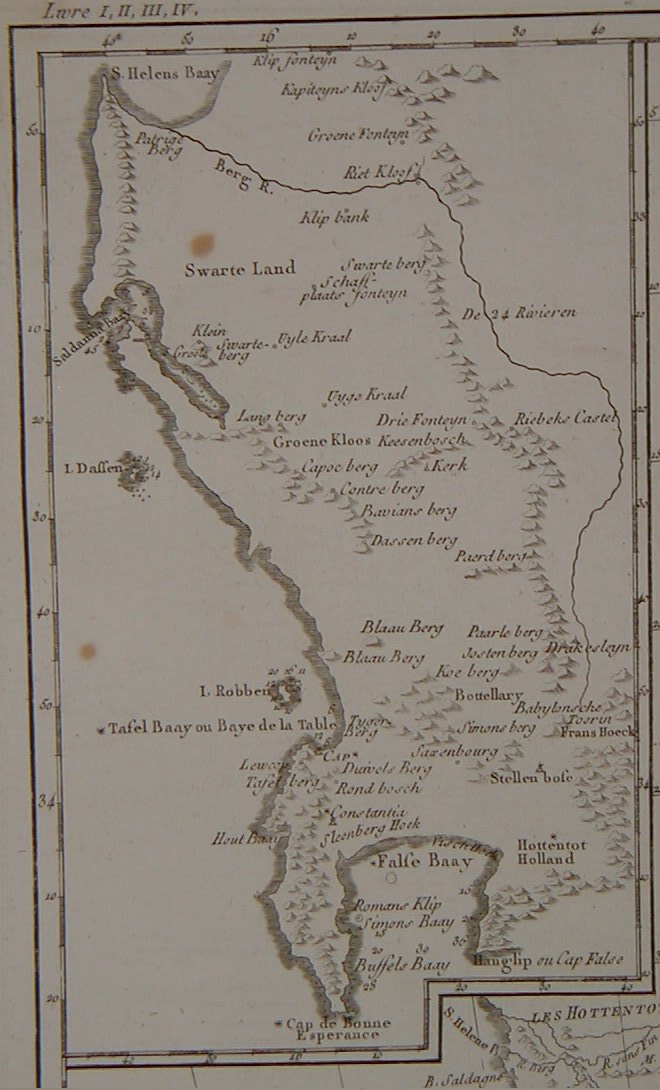 Livre I, II, III, IV.
40ᵃ 50 16 10 20 30 40
S. Helens Baay
Klip fonteyn
Kapiteyns Kloof
50
Patrige
Berg
Groene Fonteyn
Berg R.
Riet Kloof
Klip bank
Swarte Land
Swarte berg
Schaff-
plaats fonteyn
De 24 Rivieren
Saldanha Baay
10
Klein
Swarte-
Groote berg
Uyle Kraal
Uyge Kraal
20
Lang berg
Drie Fonteyn
Riebeks Castel
Groene Kloos
Keesenbosch
I. Dassen
Capoc berg
Kerk
Contre berg
Bavians berg
30
Dassen berg
Paerd berg
40
Blaau Berg
Paarle berg
Drakesteyn
Blaau Berg
Jostenberg
Koe berg
I. Robben
Bottellary
50
Babylonsche
Toorin
Tafel Baay ou Baye de la Table
Tyger
Berg
Simons berg
Frans Hoeck
CAP
Saxenbourg
Lewcop
Duivels Berg
Stellen bosc
Tafel berg
Rond bosch
34
Constantia
Steenberg Hoek
Hout Baay
Visch Hoek
Hottentot
Holland
False Baay
10
Romans Klip
Simons Baay
Buffels Baay
Hanglip ou Cap False
20
Cap de Bonne
Esperance
40 50 16 10 20 30 40
LES HOTTENTO
S. Helene P.
R. Berg
R. sans Fin
B. Saldagne